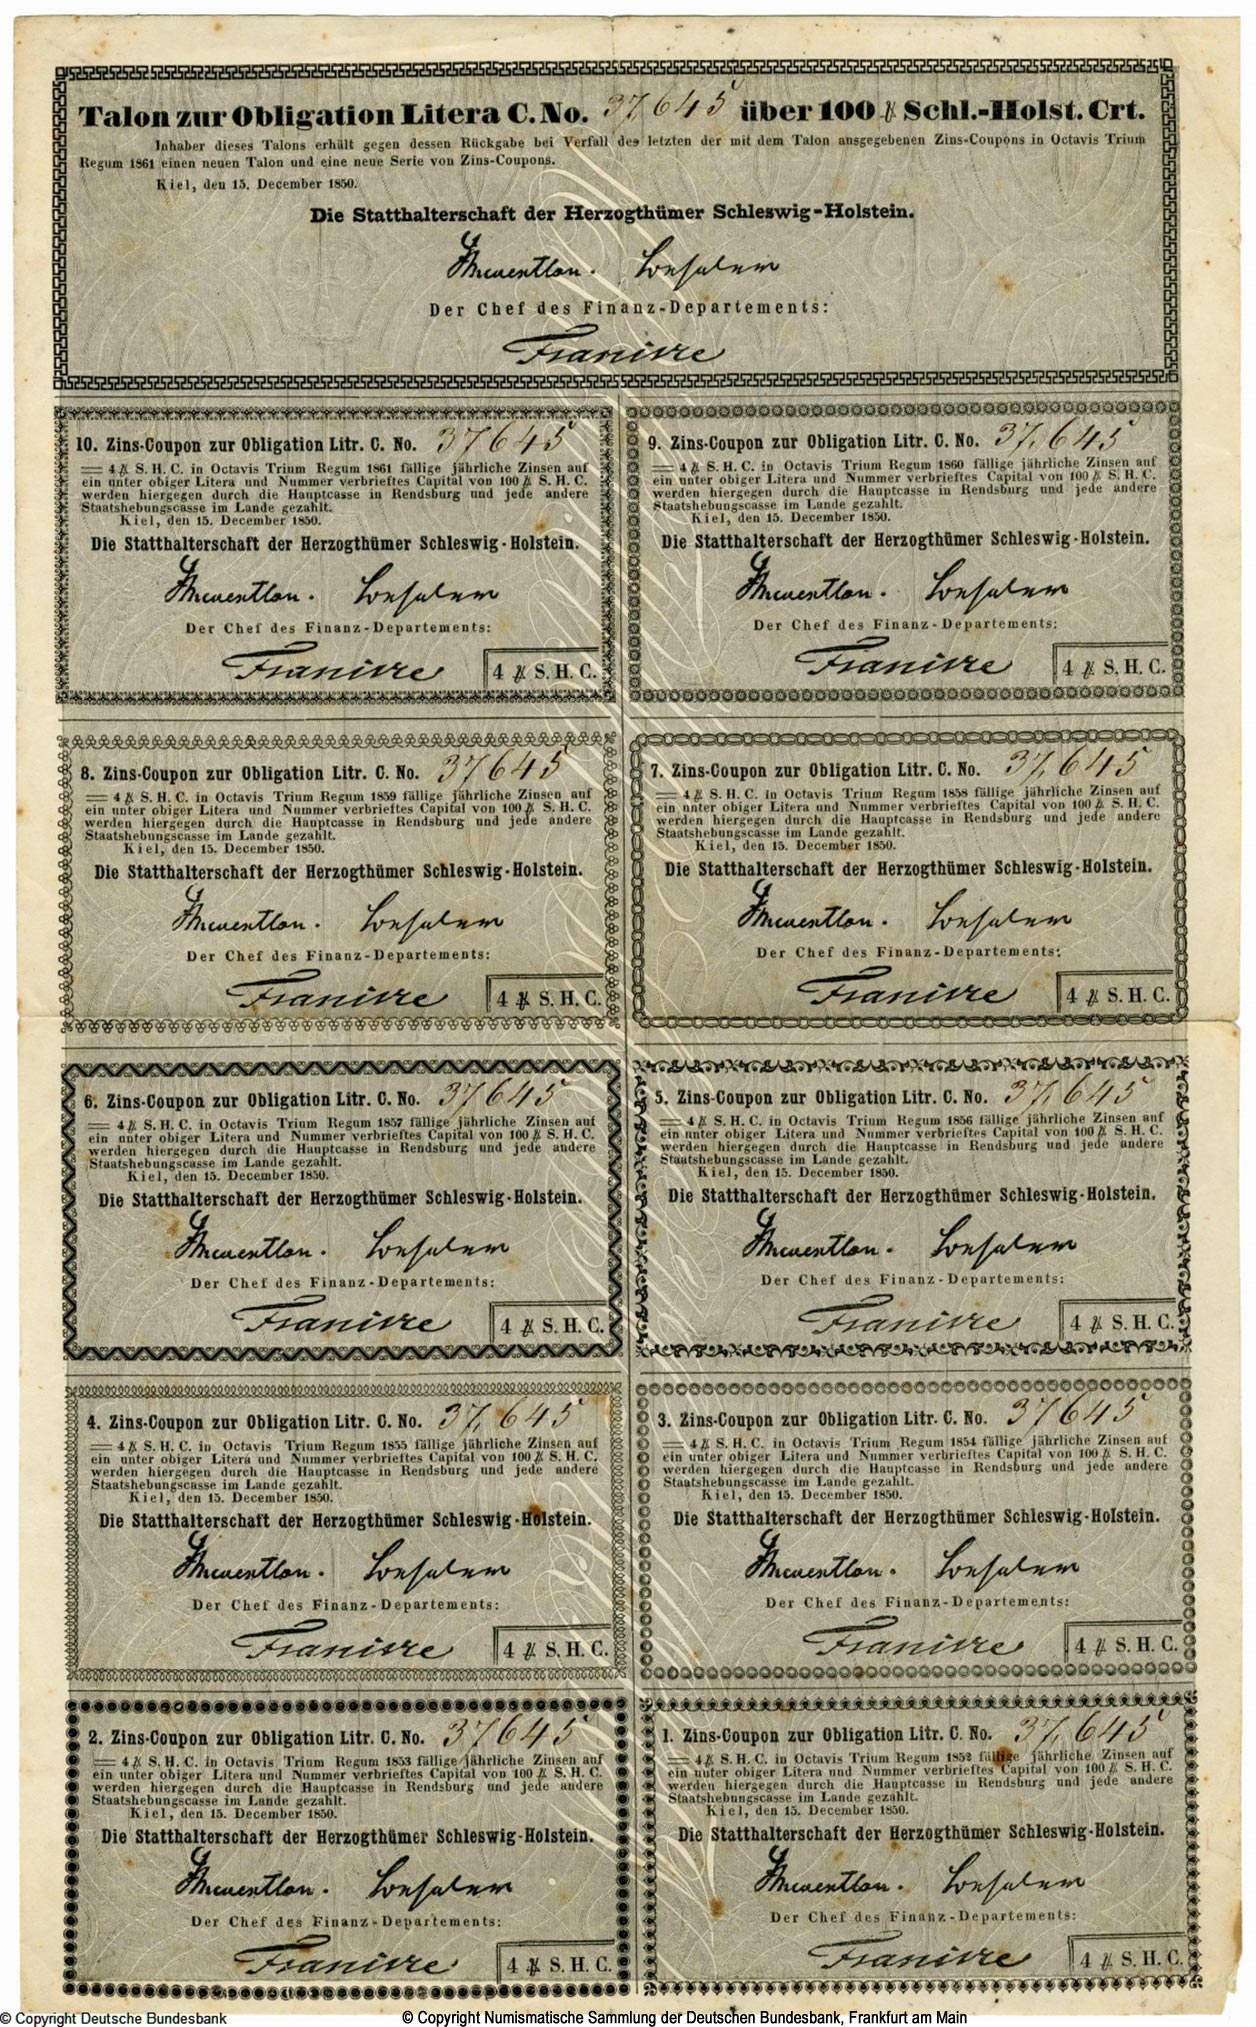 Talon zur Obligation Litera C. No. 37,645 über 100 ₰ Schl.-Holst. Crt.
Inhaber dieses Talons erhält gegen dessen Rückgabe bei Verfall des letzten der mit dem Talon ausgegebenen Zins-Coupons in Octavis Trium
Regum 1861 einen neuen Talon und eine neue Serie von Zins-Coupons.
Kiel, den 15. December 1850.
Die Statthalterschaft der Herzogthümer Schleswig-Holstein.
Der Chef des Finanz-Departements:
10. Zins-Coupon zur Obligation Litr. C. No. 37645
4 S. H. C. in Octavis Trium Regum 1861 fällige jährliche Zinsen auf
ein unter obiger Litera und Nummer verbrieftes Capital von 100 S. H. C.
werden hiergegen durch die Hauptcasse in Rendsburg und jede andere
Staatshebungscasse im Lande gezahlt.
Kiel, den 15. December 1850.
Die Statthalterschaft der Herzogthümer Schleswig-Holstein.
Der Chef des Finanz-Departements:
4 S. H. C.
9. Zins-Coupon zur Obligation Litr. C. No. 37,645
4 S. H. C. in Octavis Trium Regum 1860 fällige jährliche Zinsen auf
ein unter obiger Litera und Nummer verbrieftes Capital von 100 S. H. C.
werden hiergegen durch die Hauptcasse in Rendsburg und jede andere
Staatshebungscasse im Lande gezahlt.
Kiel, den 15. December 1850.
Die Statthalterschaft der Herzogthümer Schleswig-Holstein.
Der Chef des Finanz-Departements:
4 S. H. C.
8. Zins-Coupon zur Obligation Litr. C. No. 37645
4 S. H. C. in Octavis Trium Regum 1859 fällige jährliche Zinsen auf
ein unter obiger Litera und Nummer verbrieftes Capital von 100 S. H. C.
werden hiergegen durch die Hauptcasse in Rendsburg und jede andere
Staatshebungscasse im Lande gezahlt.
Kiel, den 15. December 1850.
Die Statthalterschaft der Herzogthümer Schleswig-Holstein.
Der Chef des Finanz-Departements:
4 S. H. C.
7. Zins-Coupon zur Obligation Litr. C. No. 37,645
4 S. H. C. in Octavis Trium Regum 1858 fällige jährliche Zinsen auf
ein unter obiger Litera und Nummer verbrieftes Capital von 100 S. H. C.
werden hiergegen durch die Hauptcasse in Rendsburg und jede andere
Staatshebungscasse im Lande gezahlt.
Kiel, den 15. December 1850.
Die Statthalterschaft der Herzogthümer Schleswig-Holstein.
Der Chef des Finanz-Departements:
4 S. H. C.
6. Zins-Coupon zur Obligation Litr. C. No. 37,645
4 S. H. C. in Octavis Trium Regum 1857 fällige jährliche Zinsen auf
ein unter obiger Litera und Nummer verbrieftes Capital von 100 S. H. C.
werden hiergegen durch die Hauptcasse in Rendsburg und jede andere
Staatshebungscasse im Lande gezahlt.
Kiel, den 15. December 1850.
Die Statthalterschaft der Herzogthümer Schleswig-Holstein.
Der Chef des Finanz-Departements:
4 S. H. C.
5. Zins-Coupon zur Obligation Litr. C. No. 37,645
4 S. H. C. in Octavis Trium Regum 1856 fällige jährliche Zinsen auf
ein unter obiger Litera und Nummer verbrieftes Capital von 100 S. H. C.
werden hiergegen durch die Hauptcasse in Rendsburg und jede andere
Staatshebungscasse im Lande gezahlt.
Kiel, den 15. December 1850.
Die Statthalterschaft der Herzogthümer Schleswig-Holstein.
Der Chef des Finanz-Departements:
4 S. H. C.
4. Zins-Coupon zur Obligation Litr. C. No. 37,645
4 S. H. C. in Octavis Trium Regum 1855 fällige jährliche Zinsen auf
ein unter obiger Litera und Nummer verbrieftes Capital von 100 S. H. C.
werden hiergegen durch die Hauptcasse in Rendsburg und jede andere
Staatshebungscasse im Lande gezahlt.
Kiel, den 15. December 1850.
Die Statthalterschaft der Herzogthümer Schleswig-Holstein.
Der Chef des Finanz-Departements:
4 S. H. C.
3. Zins-Coupon zur Obligation Litr. C. No. 37645
4 S. H. C. in Octavis Trium Regum 1854 fällige jährliche Zinsen auf
ein unter obiger Litera und Nummer verbrieftes Capital von 100 S. H. C.
werden hiergegen durch die Hauptcasse in Rendsburg und jede andere
Staatshebungscasse im Lande gezahlt.
Kiel, den 15. December 1850.
Die Statthalterschaft der Herzogthümer Schleswig-Holstein.
Der Chef des Finanz-Departements:
4 S. H. C.
2. Zins-Coupon zur Obligation Litr. C. No. 37645
4 S. H. C. in Octavis Trium Regum 1853 fällige jährliche Zinsen auf
ein unter obiger Litera und Nummer verbrieftes Capital von 100 S. H. C.
werden hiergegen durch die Hauptcasse in Rendsburg und jede andere
Staatshebungscasse im Lande gezahlt.
Kiel, den 15. December 1850.
Die Statthalterschaft der Herzogthümer Schleswig-Holstein.
Der Chef des Finanz-Departements:
4 S. H. C.
1. Zins-Coupon zur Obligation Litr. C. No. 37,645
4 S. H. C. in Octavis Trium Regum 1852 fällige jährliche Zinsen auf
ein unter obiger Litera und Nummer verbrieftes Capital von 100 S. H. C.
werden hiergegen durch die Hauptcasse in Rendsburg und jede andere
Staatshebungscasse im Lande gezahlt.
Kiel, den 15. December 1850.
Die Statthalterschaft der Herzogthümer Schleswig-Holstein.
Der Chef des Finanz-Departements:
4 S. H. C.
© Copyright Deutsche Bundesbank
© Copyright Numismatische Sammlung der Deutschen Bundesbank, Frankfurt am Main